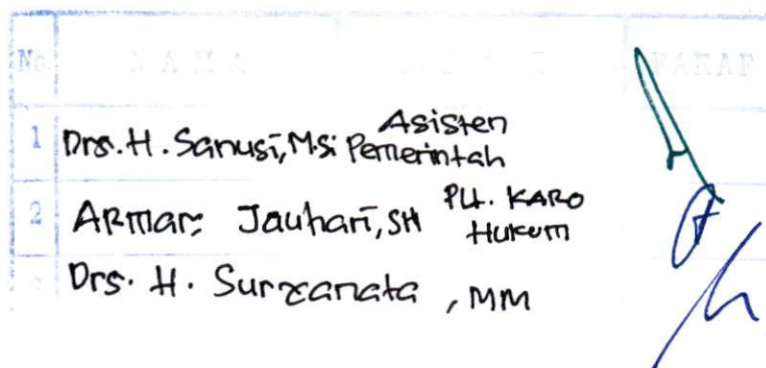 No NAMA PARAF
1 Drs. H. Sanusi, M.Si Asisten Pemerintah
2 Arman Jauhari, SH Plt. KARO Hukum
Drs. H. Suryanata, MM